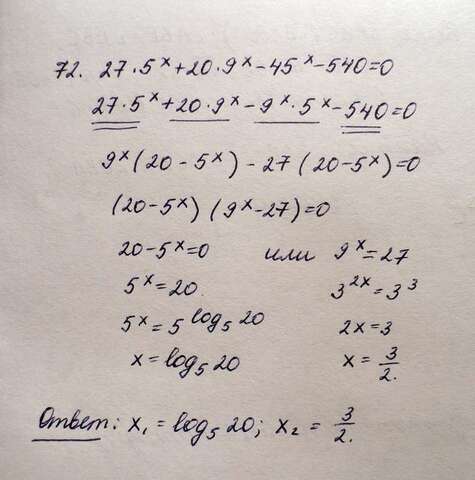 72. 27·5^x+20·9^x-45^x-540=0
27·5^x+20·9^x-9^x·5^x-540=0
9^x(20-5^x)-27(20-5^x)=0
(20-5^x)(9^x-27)=0
20-5^x=0 или 9^x=27
5^x=20 3^2x=3^3
5^x=5^log₅20 2x=3
x=log₅20 x=3/2.
Ответ: x₁=log₅20; x₂=3/2.